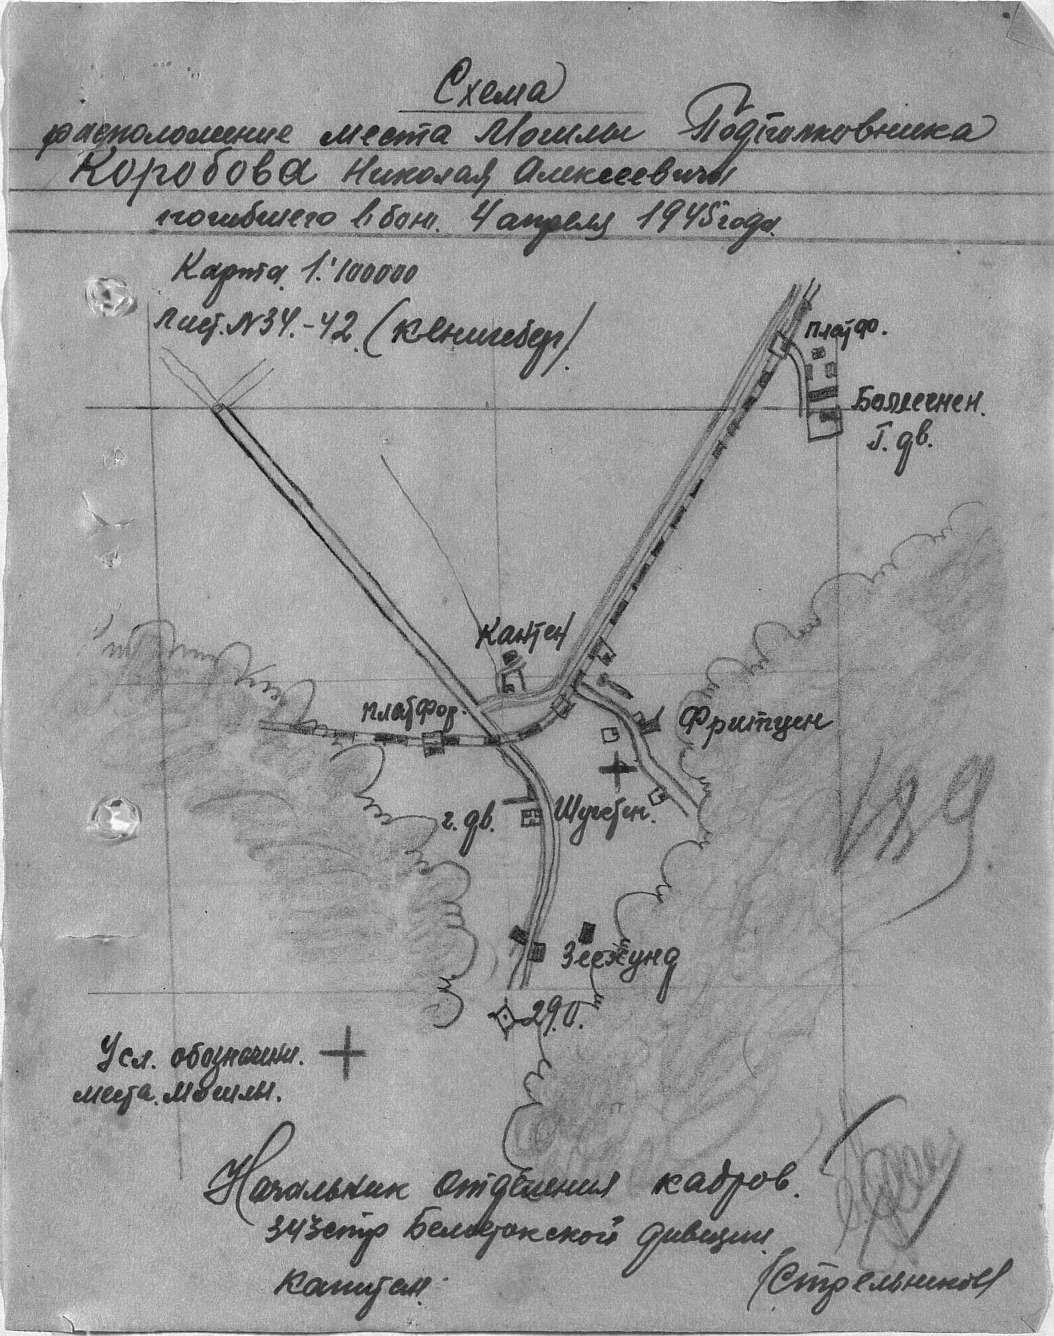 Схема
расположение места Могилы Подполковника
Коробова Николая Алексеевича
погибшего в бою. 4 апреля 1945 года.
Карта 1:100000
Лист. N34.-42 (Кенигсбер)
Платф.
Г. дв.
Кантен
Платфор.
Фритцен
г. дв.
Шугстен.
Зеехунд
29,0.
189
Усл. обозначени.
места. могилы.
Начальник отделения кадров.
343 стр Белостокской дивизии
капитан
(Стрельников)